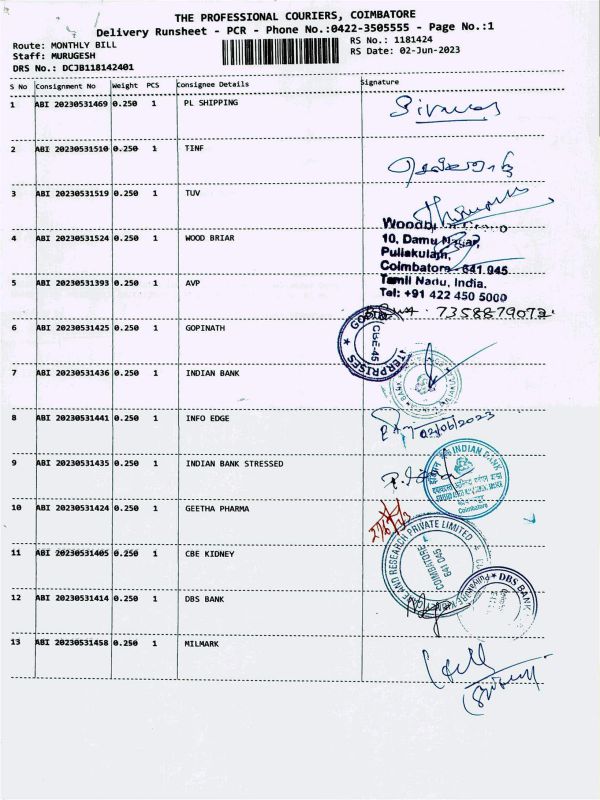 THE PROFESSIONAL COURIERS, COIMBATORE
Delivery Runsheet - PCR - Phone No.:0422-3505555 - Page No.:1
Route: MONTHLY BILL RS No.: 1181424
Staff: MURUGESH RS Date: 02-Jun-2023
DRS No.: DCJB118142401
S No Consignment No Weight PCS Consignee Details Signature
1 ABI 20230531469 0.250 1 PL SHIPPING
2 ABI 20230531510 0.250 1 TINF
3 ABI 20230531519 0.250 1 TUV
4 ABI 20230531524 0.250 1 WOOD BRIAR
10, Damu Nagar,
Puliakulam,
Coimbatore - 641 045
Tamil Nadu, India.
Tel: +91 422 450 5000
5 ABI 20230531393 0.250 1 AVP
7358879072
6 ABI 20230531425 0.250 1 GOPINATH
CBE-45
7 ABI 20230531436 0.250 1 INDIAN BANK
8 ABI 20230531441 0.250 1 INFO EDGE
02/06/2023
9 ABI 20230531435 0.250 1 INDIAN BANK STRESSED
INDIAN BANK
Coimbatore
10 ABI 20230531424 0.250 1 GEETHA PHARMA
11 ABI 20230531405 0.250 1 CBE KIDNEY
AND RESEARCH PRIVATE LIMITED
COIMBATORE
641 045
12 ABI 20230531414 0.250 1 DBS BANK
DBS BANK
13 ABI 20230531458 0.250 1 MILMARK